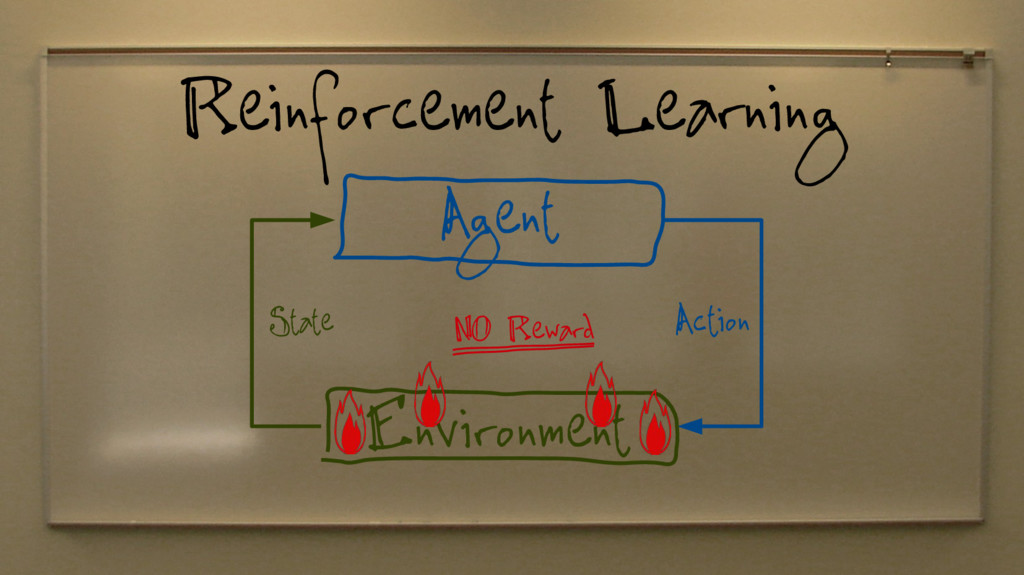 Reinforcement Learning
Agent
State
NO Reward
Action
Environment